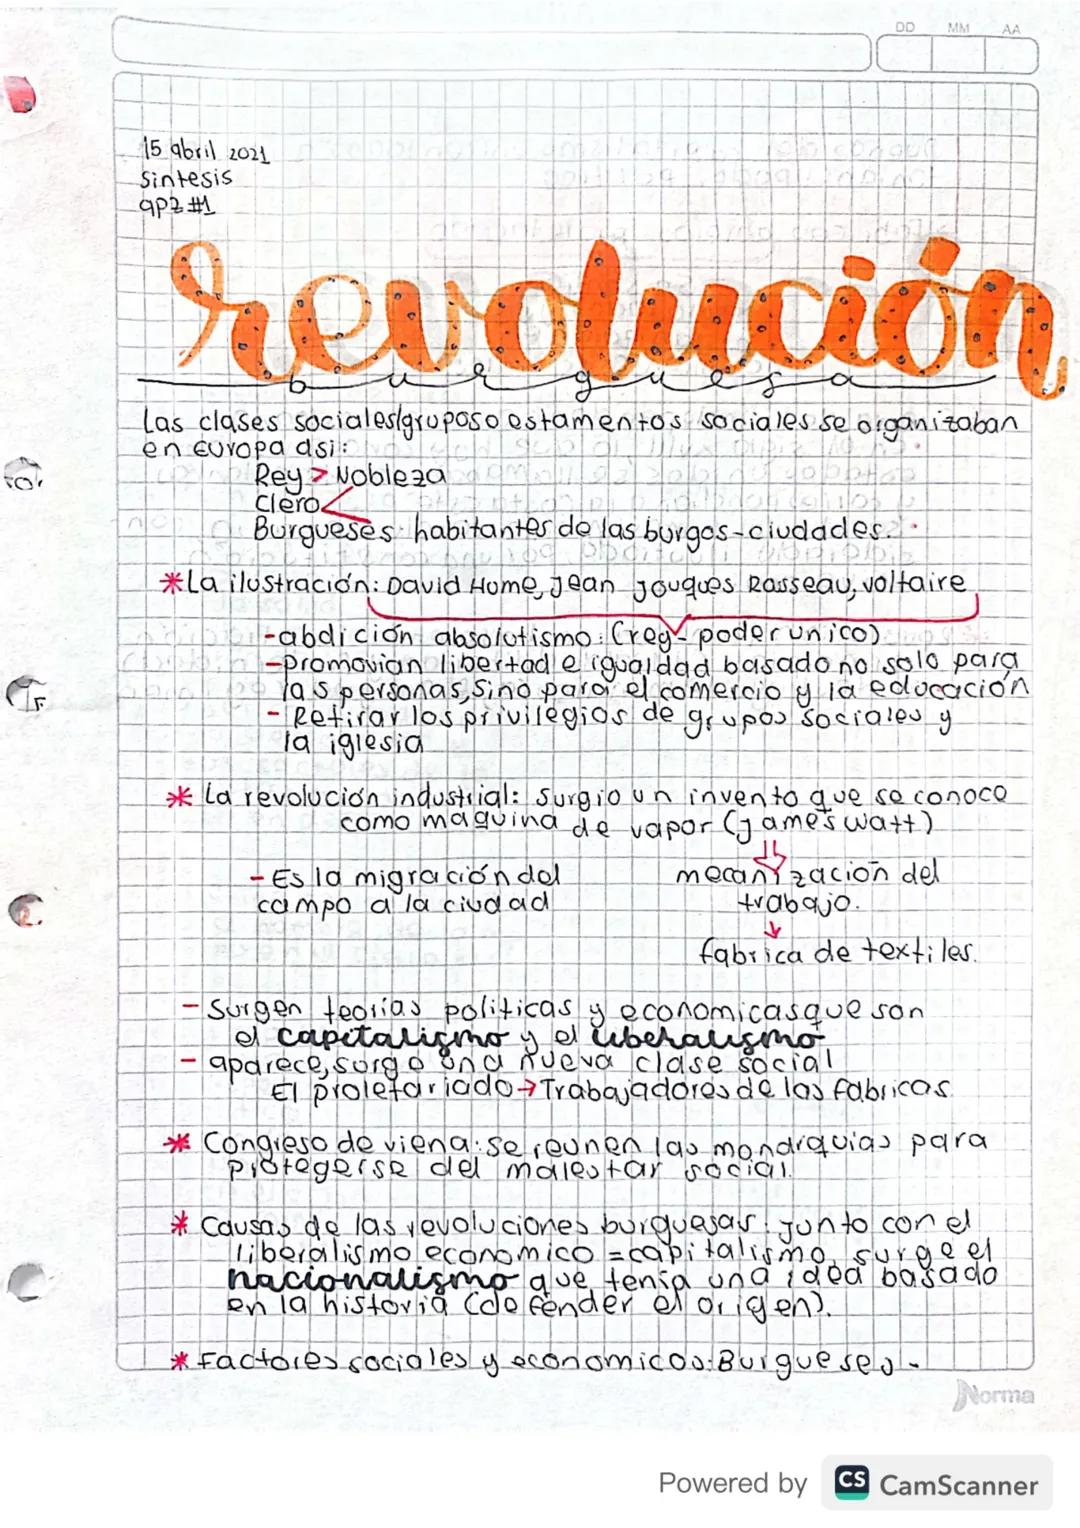 DD MM AA
15 abril 2021
Sintesis
apz #1
revolución
burguesa
Las clases sociales/grupos o estamentos sociales se organizaban
en Europa asi:
Rey > Nobleza
Clero <
Burgueses habitantes de las burgos-ciudades.
*La ilustración: David Home, Jean Jouques Rasseau, voltaire
-abdición absolutismo (rey- poder unico)
-promovian libertad e igualdad basado no solo para
las personas, Sino para el comercio y la educación
- Retirar los privilegios de grupos sociales y
la iglesia
* La revolución industrial: Surgio un invento que se conoce
como maquina de vapor (james watt)
- Es la migración del
campo a la ciudad
mecanización del
trabajo.
fabrica de textiles.
- Surgen teorias politicas y economicas que son
el capitalismo y el liberalismo
- aparece, surge una nueva clase social
El proletariado → Trabajadores de las fabricas.
* Congreso de viena: se reunen las monarquias para
protegerse del malestar social.
* Causas de las revoluciones burguesas: junto con el
liberalismo economico = capitalismo, surge el
nacionalismo que tenia una idea basado
en la historia (defender el origen).
* Factores sociales y economicos: Burgueses -
Norma
Powered by CS CamScanner